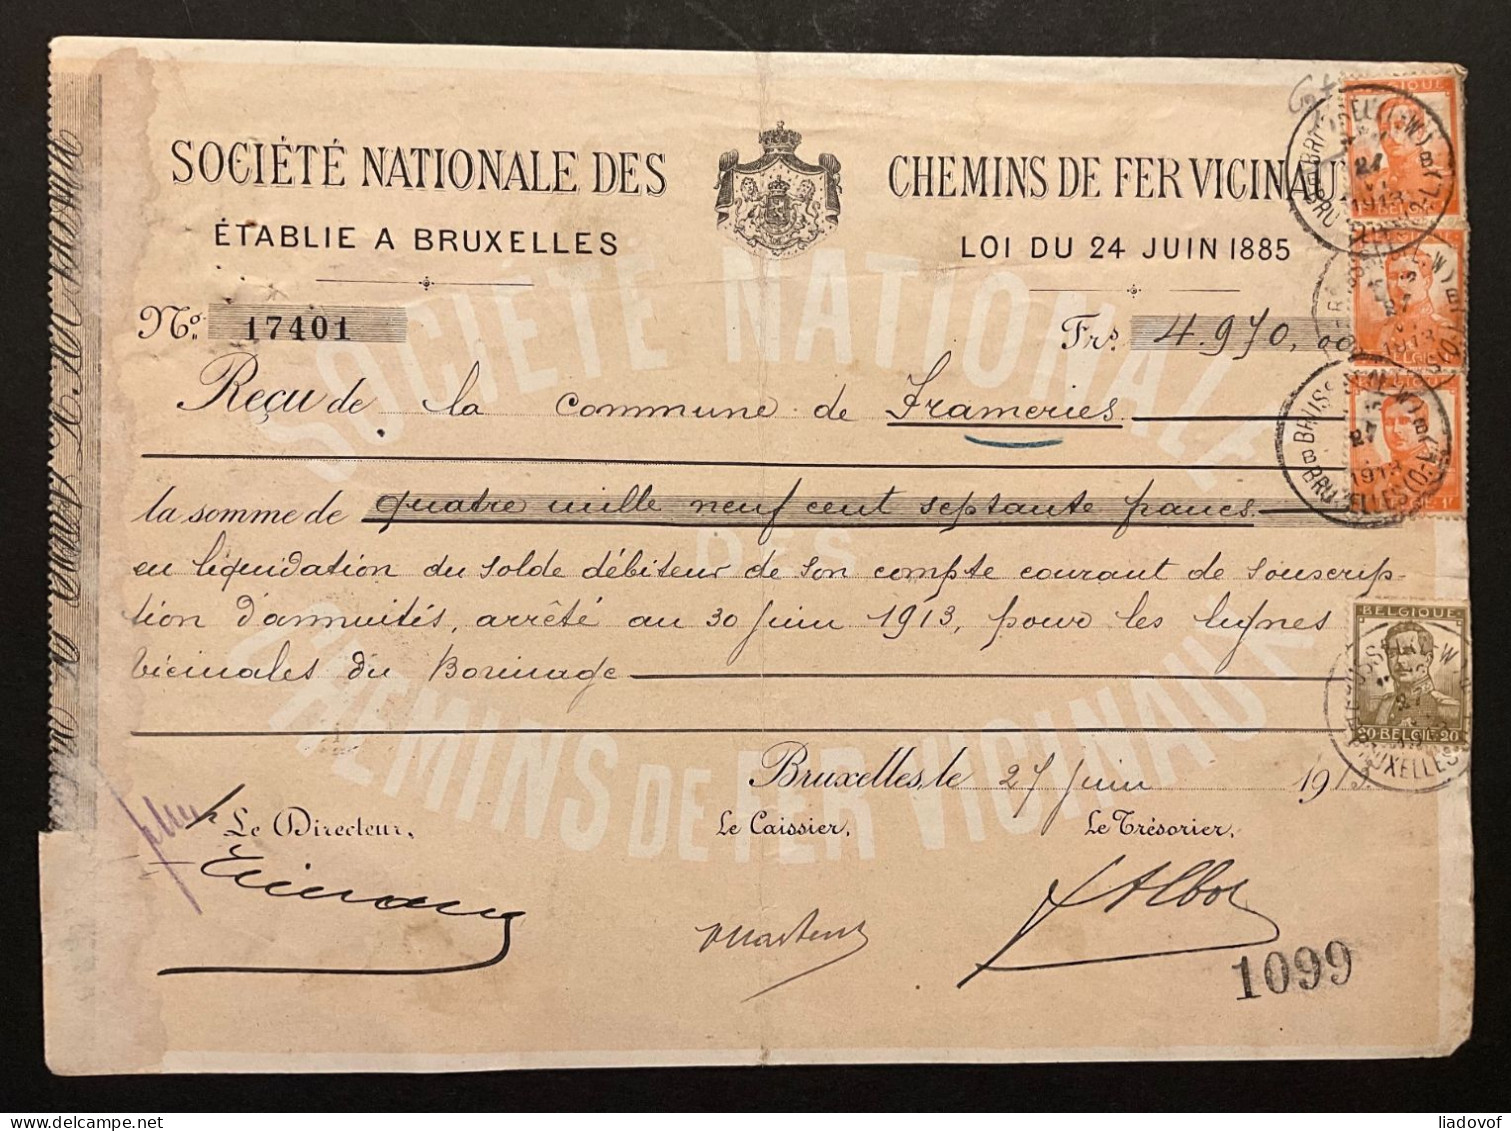 SOCIÉTÉ NATIONALE DES CHEMINS DE FER VICINAUX
ÉTABLIE A BRUXELLES
LOI DU 24 JUIN 1885
No. 17401
Frs. 4.970,00
Reçu de la commune de Frameries
la somme de quatre mille neuf cent septante francs
en liquidation du solde débiteur de son compte courant de souscrip-
tion d'annuités, arrêté au 30 juin 1913, pour les lignes
vicinales du Borinage
Bruxelles, le 27 juin 1913.
Le Directeur,
Le Caissier,
Le Trésorier,
1099
SOCIÉTÉ NATIONALE
DES
CHEMINS DE FER VICINAUX
BELGIQUE
BELGIË
BELGIQUE
BELGIË
BELGIQUE
1F
BELGIQUE
20 BELGIË 20
BRUXELLES
27
1913
liadovof